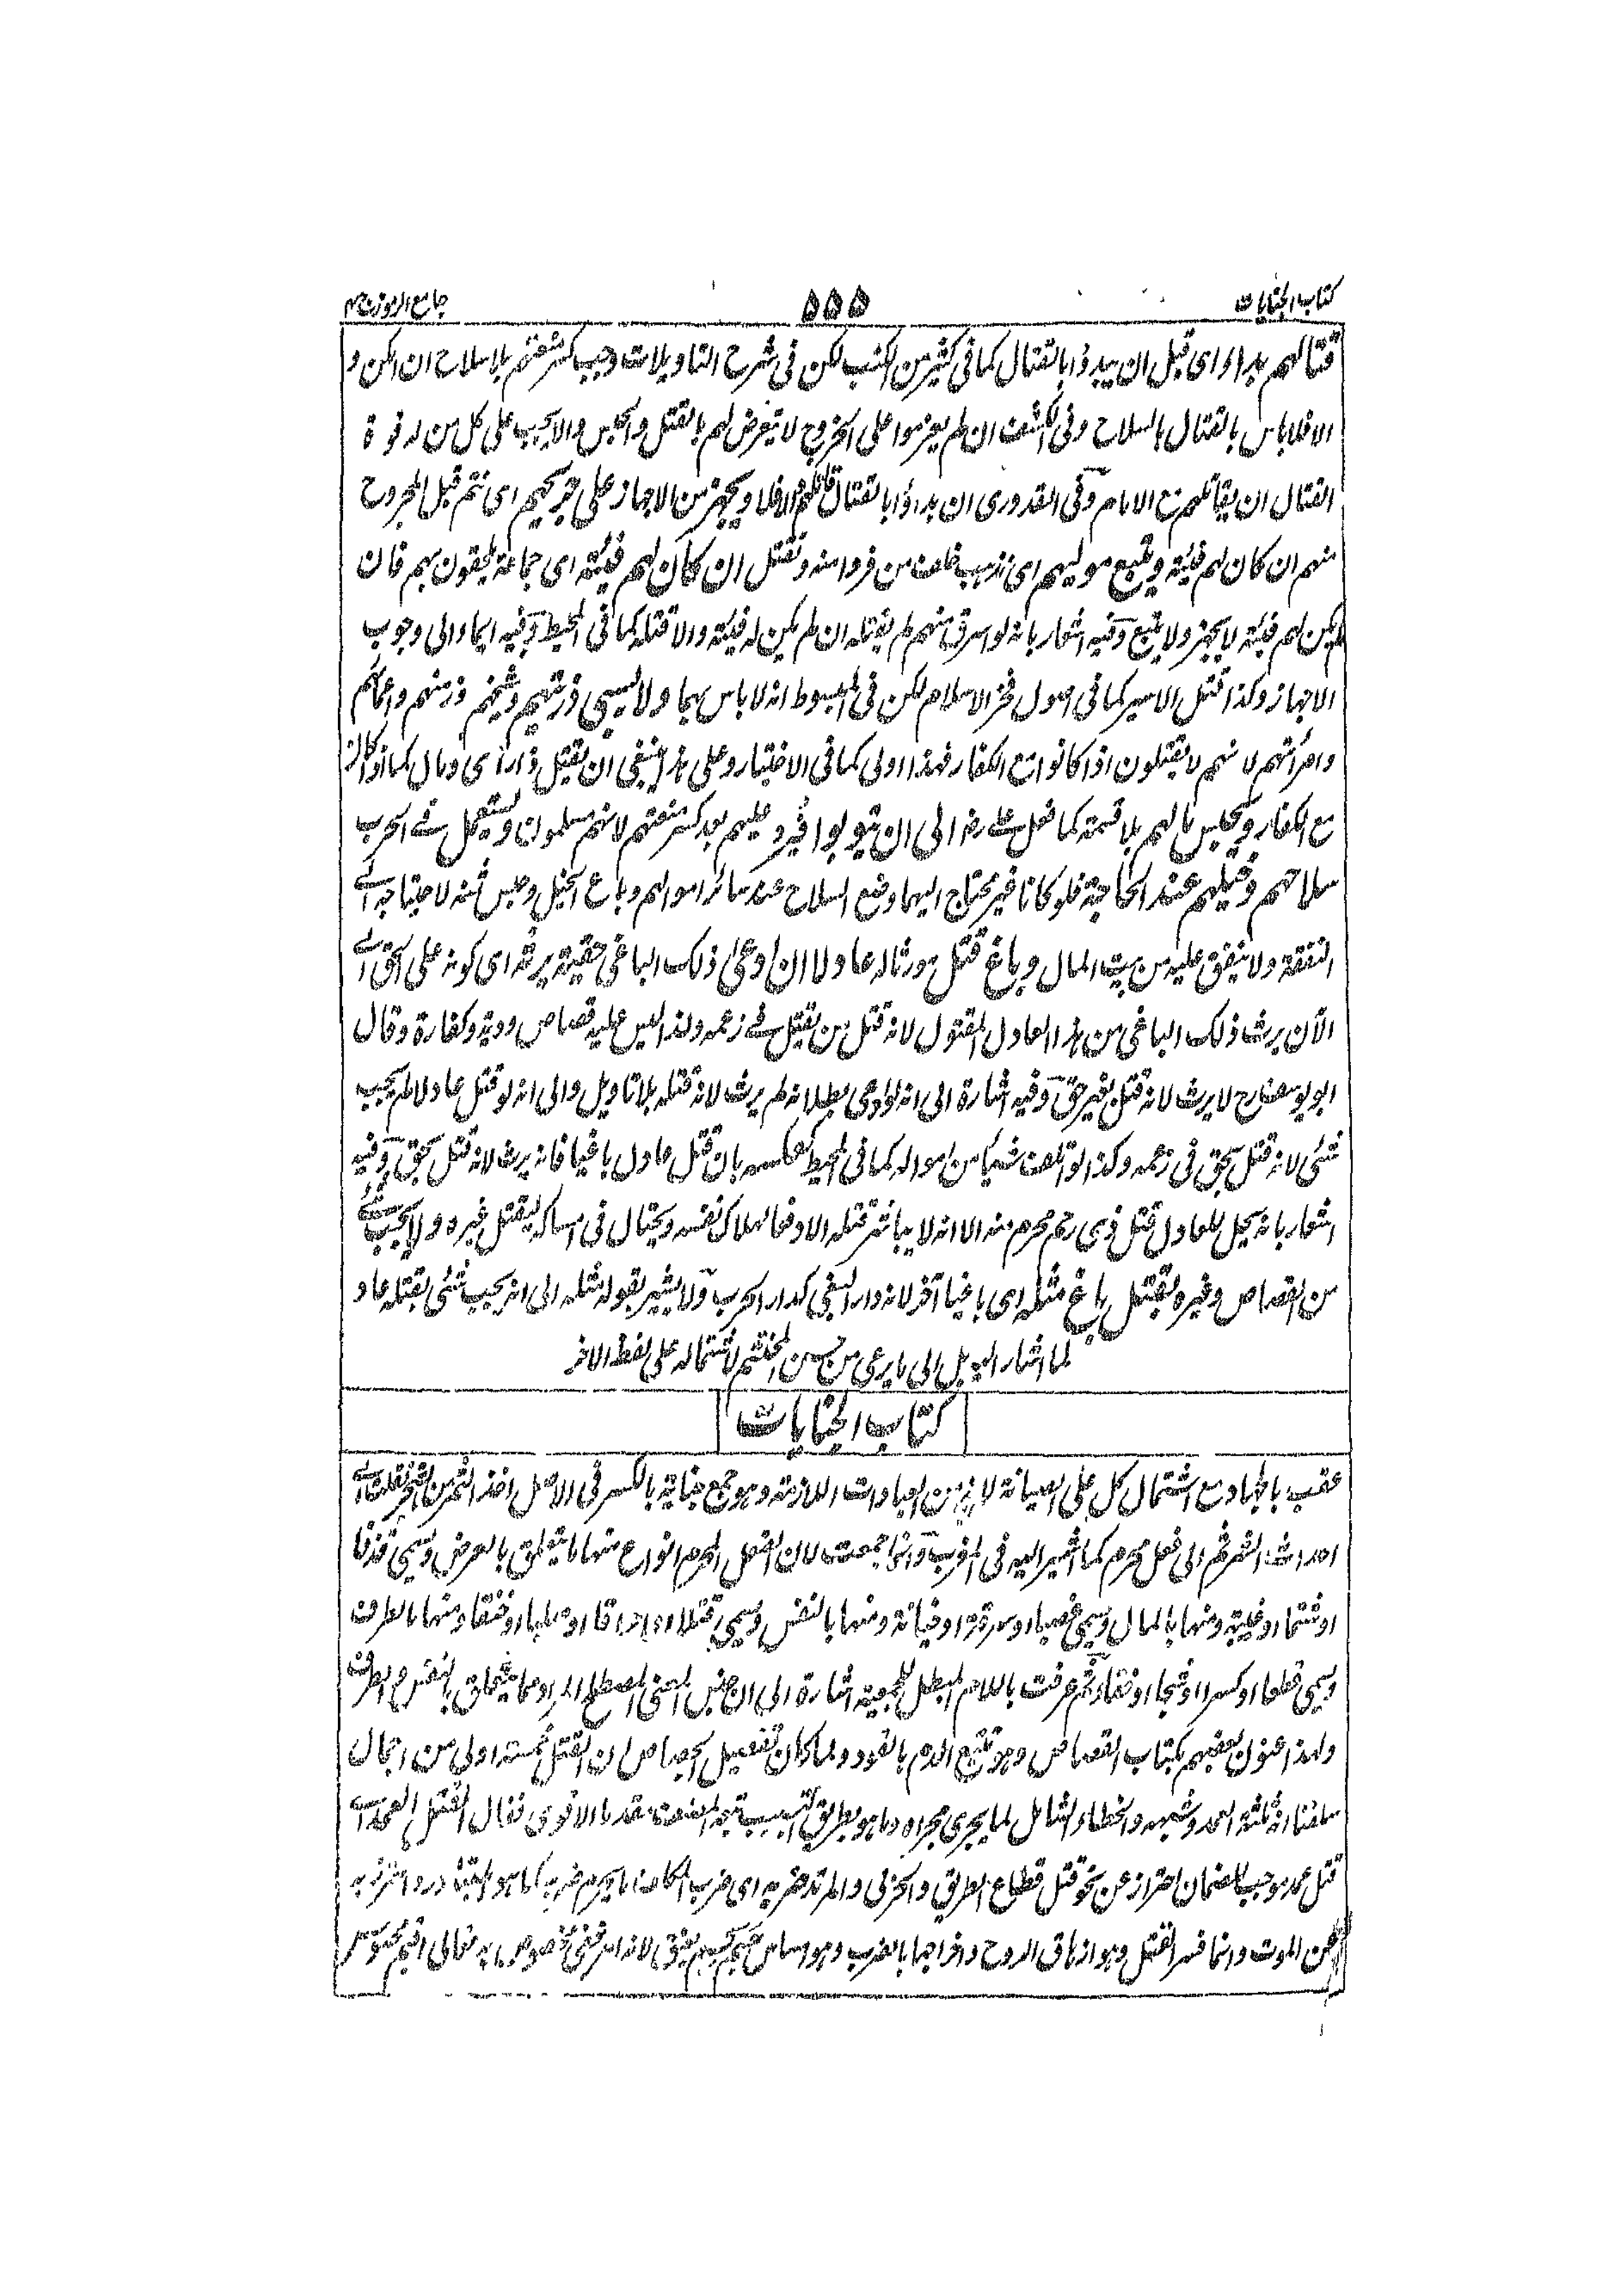 كتاب الجنايات
۵۵۵
جامع الرموز ج ۴
قتالهم بدأ او اى قبل ان يبدؤا بالقتال كما فى كثير من الكتب لكن فى شرح التاويلات وجب كسر منعتهم بلا سلاح ان امكن و
الا فلا باس بالقتال بالسلاح وفى الكشف ان لم يعزموا على الخروج لا يتعرض لهم بالقتل والحبس والا يجب على كل من له قوة
القتال ان يقاتلهم مع الامام وفى القدورى ان بداؤا بالقتال قاتلهم والا فلا ويجهز من الاجهاز على جريحهم اى نتم قبل المجروح
منهم ان كان لهم فئية ويتبع موليهم اى نذهب خلف من فر وامنه ونقتل ان كان لهم فئية اى جماعة يلحقون بهم فان
لم يكن لهم فئية لا يجهز ولا يتبع وفيه اشعار بانه لو اسرق منهم لم يقتله ان لم يكن له فئية والا قتله كما فى المحيط وفيه ايماء الى وجوب
الاجهاز وكذا قتل الاسير كما فى اصول فخر الاسلام لكن فى المبسوط انه لا باس بهما ولا يسبى ذريتهم وشيخهم وزمنهم واعماهم
وامرأتهم لانهم لا يقتلون اذا كانوا مع الكفار فهذا اولى كما فى الاختيار وعلى هذا ينبغى ان يقتل ذا رأى ومال كما اذا كان
مع الكفار ويحبس مالهم بلا قسمة كما فعل على رض الى ان يتوبوا فيرد عليهم بعد كسر منعتهم لانهم مسلمون ويستعمل فى الحرب
سلاحهم وخيلهم عند الحاجة فلو كانا غير محتاج اليهما وضع السلاح عند سائر اموالهم وباع الخيل وحبس ثمنه لاحتياجه الى
النفقة ولا ينفق عليه من بيت المال وباغ قتل مورثا له عادلا ان ادعى ذلك الباغى حقية يرثه اى كونه على الحق الى
الآن يرث ذلك الباغى من هذا العادل المقتول لانه قتل من يقتل فى زعمه ولذا ليس عليه قصاص ودية وكفارة وقال
ابو يوسف رح لا يرث لانه قتل بغير حق وفيه اشارة الى انه لو ادعى بطلانه لم يرث لانه قتله بلا تاويل والى انه لو قتل عادلا لم يجب
شئى لانه قتل بحق فى زعمه وكذا لو اتلف شيئا من امواله كما فى المحيط كعكسه بان قتل عادل باغيا فانه يرث لانه قتل بحق وفيه
اشعار بانه يحل للعادل قتل ذى رحم محرم منه الا انه لا يباشر قتله الا دفعا لهلاك نفسه ويحتال فى امساكه ليقتل غيره ولا يجب شئ
من القصاص وغيره بقتل باغ مثله اى باغيا آخر لانه دار البغى كدار الحرب ولا يشير بقوله مثله الى انه يجب شئى بقتله عاد و
لما اشار اليه بل الى ما يرعى من حسن المختتم لاشتماله على لفظ الآخر
كتاب الجنايات
عقب بالجهاد مع اشتمال كل على الصيانة لانه من العبادات اللازمة وهو جمع جناية بالكسر فى الاصل اخذ الثمر من الشجر نقلت الى
احداث الشر ثم الى فعل محرم كما اشير اليه فى المغرب وانما جمعت لان الفعل المحرم انواع منها ما يتعلق بالعرض ويسمى قذفا
او شتما او غيبة ومنها بالمال ويسمى غصبا او سرقة او خيانة ومنها بالنفس ويسمى قتلا او احراقا او صلبا او خنقا ومنها بالطرف
ويسمى قطعا او كسرا او شجا او فقأ ثم عرفت باللام المبطل للجمعية اشارة الى الجنس المعنى المصطلح الر وما يتعلق بالنفس والطرف
ولهذا عنون بعضهم بكتاب القصاص وهو تتبع الدم بالقود ولما كان تفصيل الجصاص ان القتل خمسة اولى من اجمال
سلفنا انه ثلثة العمد وشبهه والخطاء الشامل لما يجرى مجراه وما هو بطريق التسبيب تبعه المصنف مقدما الاقوى فقال القتل العمد اى
قتل عمد موجب للضمان احتراز عن نحو قتل قطاع الطريق والحربى والمرتد ضربه اى ضرب المكلف ما يحرم ضربه كما هو المتبادر واحترز به
عن الموت وانما فسر القتل وهو ازهاق الروح واخراجها بالضرب وهو امساس جسم بعنق لانه امر خفى مخصوص به تعالى اقيم محسوس